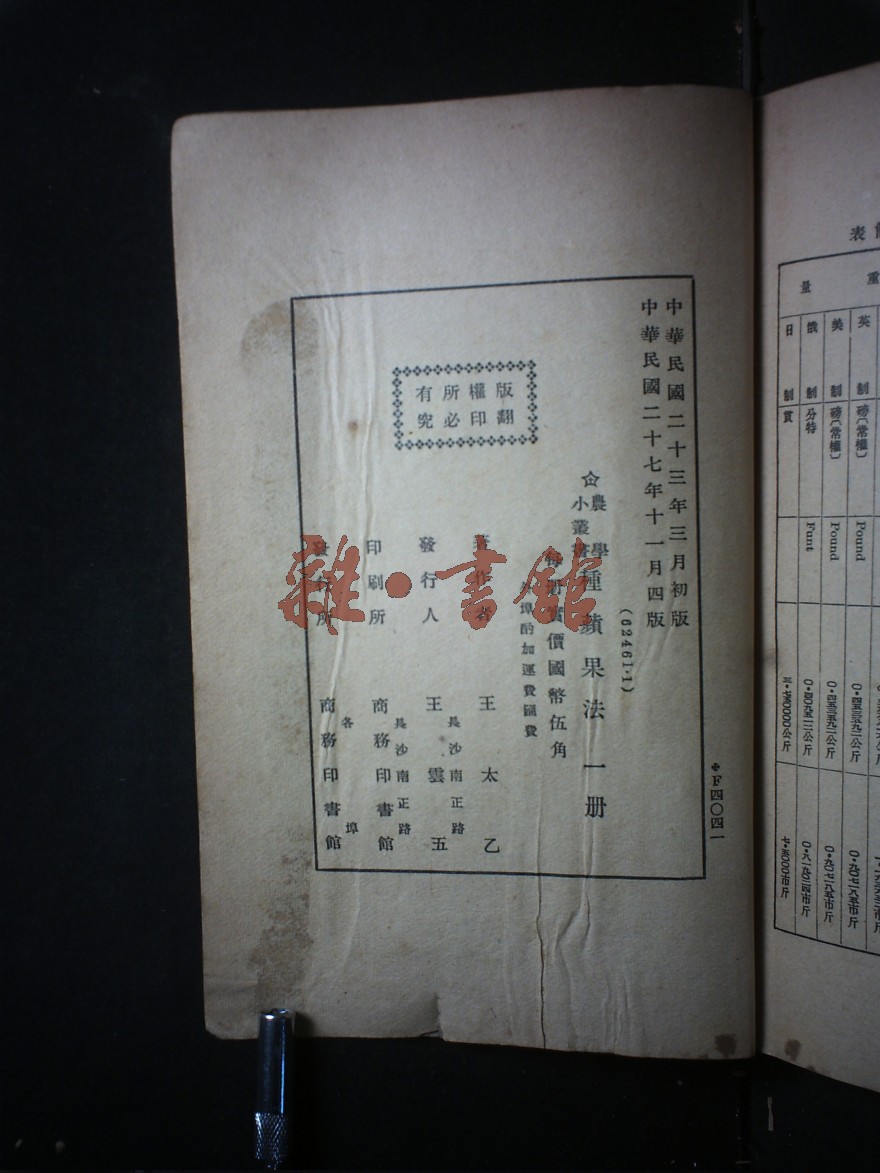 中華民國二十三年三月初版
中華民國二十七年十一月四版
(62461·1)
☆農學小叢書 種蘋果法 一册
每册實價國幣伍角
外埠酌加運費匯費
版權所有
翻印必究
著作者 王太乙
發行人 王雲五
長沙南正路
印刷所 商務印書館
長沙南正路
發行所 商務印書館
各埠
F四〇四一
雜·書館
表
重量
英制
磅(常權)
Pound
〇·四五三五九二公斤
〇·九〇七一八五市斤
美制
磅(常權)
Pound
〇·四五三五九二公斤
〇·九〇七一八五市斤
俄制
分特
Funt
〇·四〇九五一二公斤
〇·八一九〇二四市斤
日制
貫
三·七五〇〇〇〇公斤
七·五〇〇〇市斤